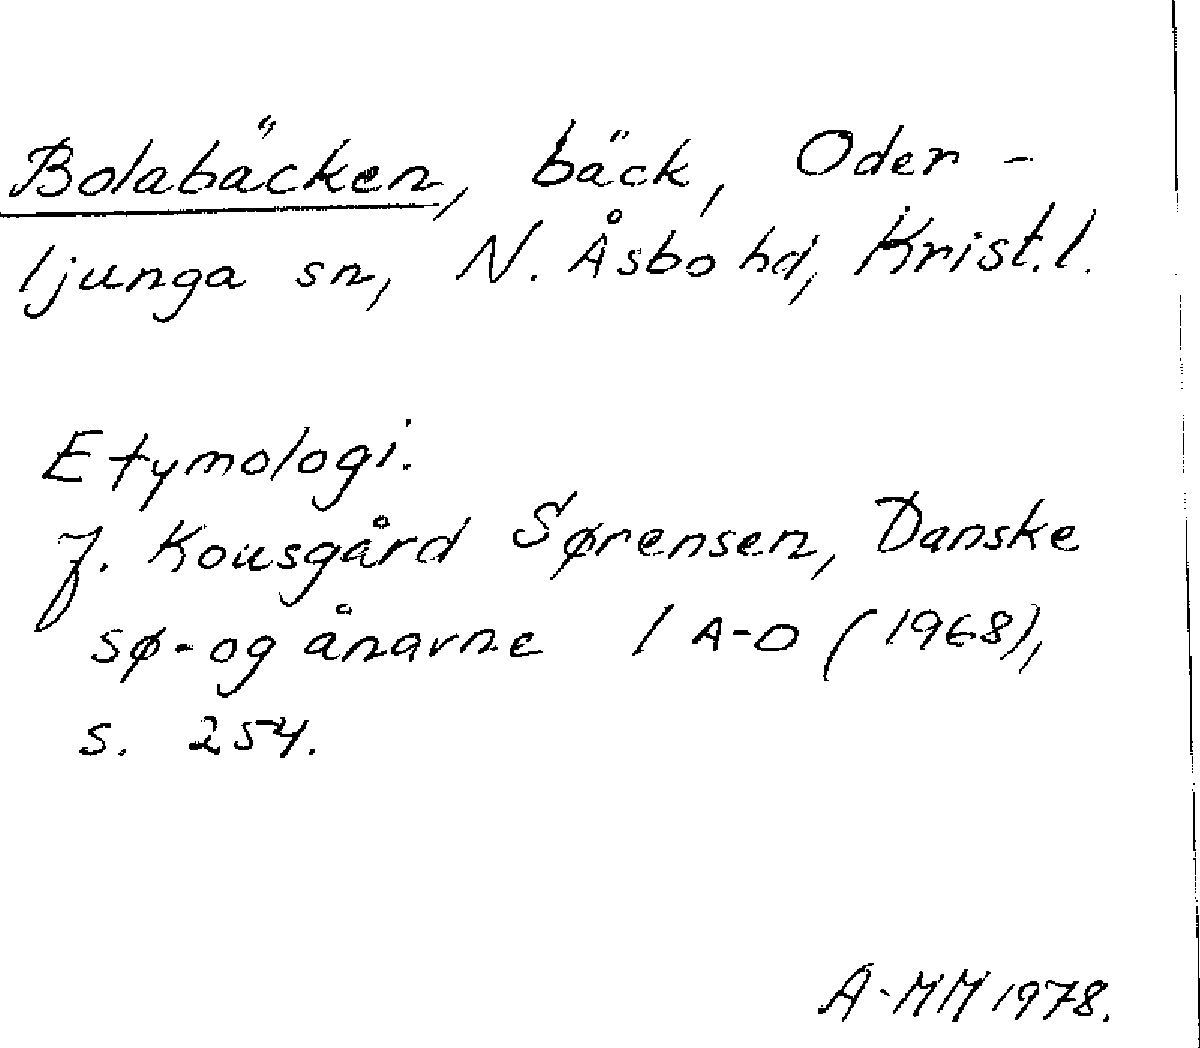 Bolabäcken, bäck, Oder-
ljunga sn, N. Åsbo hd, Krist.l.
Etymologi.
J. Kousgård Sørensen, Danske
sø- og ånavne 1 A-O (1968),
s. 254.
A-MM 1978.